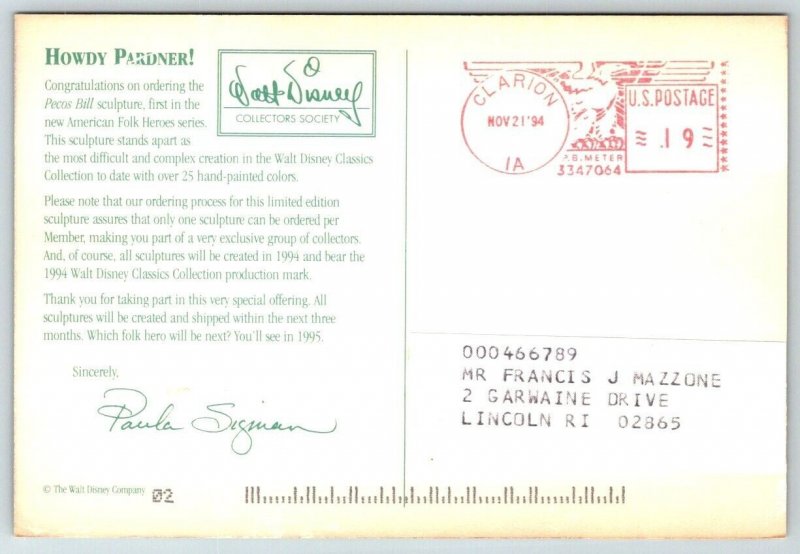 HOWDY PARDNER!
Walt Disney
COLLECTORS SOCIETY
Congratulations on ordering the
Pecos Bill sculpture, first in the
new American Folk Heroes series.
This sculpture stands apart as
the most difficult and complex creation in the Walt Disney Classics
Collection to date with over 25 hand-painted colors.
Please note that our ordering process for this limited edition
sculpture assures that only one sculpture can be ordered per
Member, making you part of a very exclusive group of collectors.
And, of course, all sculptures will be created in 1994 and bear the
1994 Walt Disney Classics Collection production mark.
Thank you for taking part in this very special offering. All
sculptures will be created and shipped within the next three
months. Which folk hero will be next? You'll see in 1995.
Sincerely,
Paula Sigman
© The Walt Disney Company 02
CLARION
NOV 21 '94
IA
U.S. POSTAGE
.19
P.B. METER
3347064
000466789
MR FRANCIS J MAZZONE
2 GARWAINE DRIVE
LINCOLN RI 02865